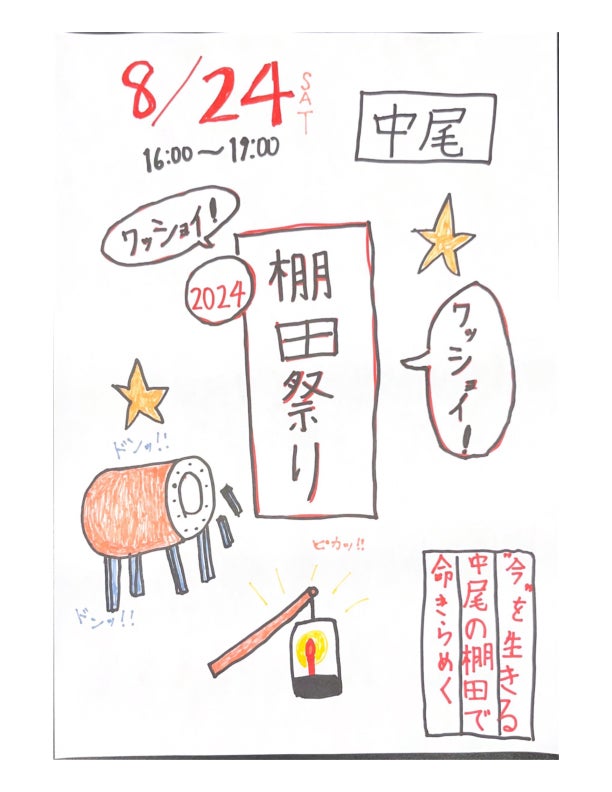 8/24 SAT
16:00～19:00
中尾
ワッショイ!
2024
棚田祭り
ワッショイ!
ドンッ!!
ドンッ!!
ピカッ!!
"今"を生きる
中尾の棚田で
命きらめく